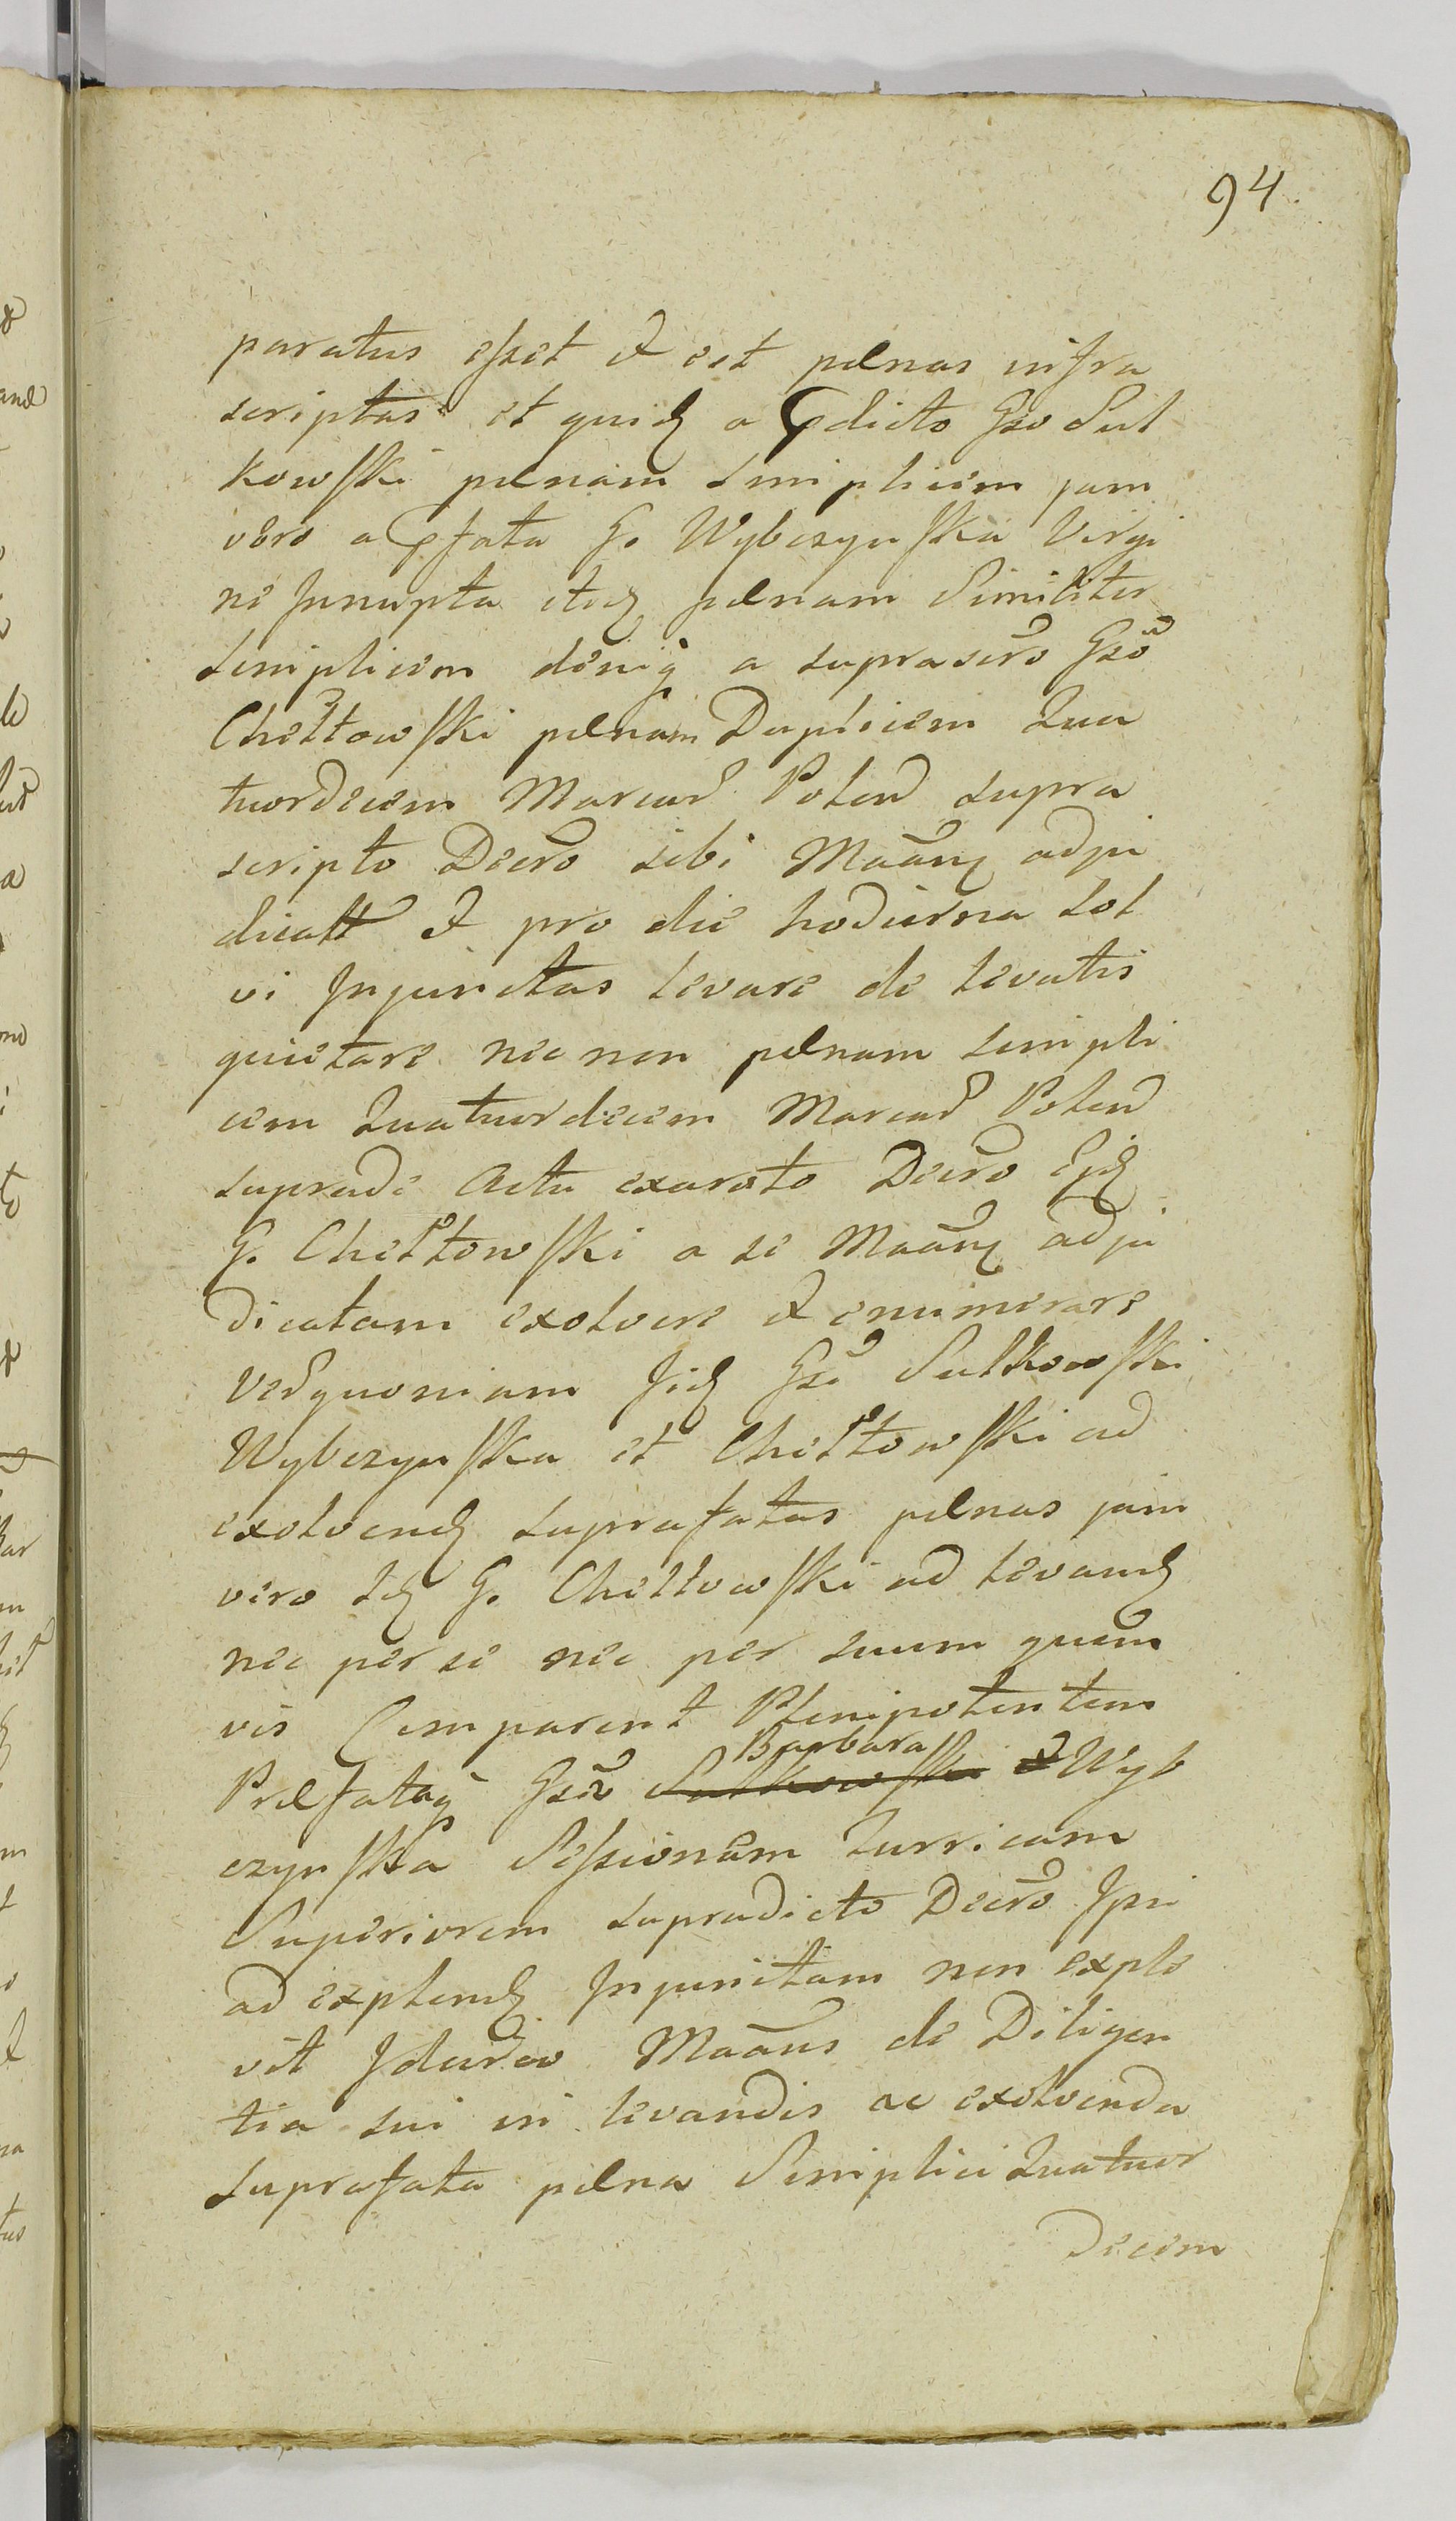 94.
paratus eszet & est pænas infra
scriptas et quid a Pdicto Gso Sul
kowski pænam simplicem jam
vero a Pfata G. Wybczynska Virgi
ne Innupta itid pænam Similiter
simplicem deniq a suprascro Gso
Chełtowski pænam Duplicem Qua
tuordecem Marcar Polon supra
scripto Decro sibi adju
dicatt & pro die hodierna sol
vi Injunctas levare de levatis
quietare nec non pænam simpli
cem Quatuordecem Marcar Polon
suprade Actu exarato Decro Ejd
G. Chełtowski a se adju
dicatam exolvere & enumerare
Verquoniam Iid Gsi Sulkowski
Wybczynska et Chełtowski ad
exolvend suprafatas pænas jam
vero Id G. Chełtowski ad levand
nec per se nec per suum quem
vis Comparent Plenipotentem
Barbara
Præfataq Gsa Sulkowski & Wyb
czynska Seszionem Turricam
Superiorem supradicto Decro Ipsi
ad explend Injunctam non exple
vit Idcirco Maanus de Diligen
tia sui in levandis ac exolvenda
suprafata pæna Simplici Quatuor
Decem